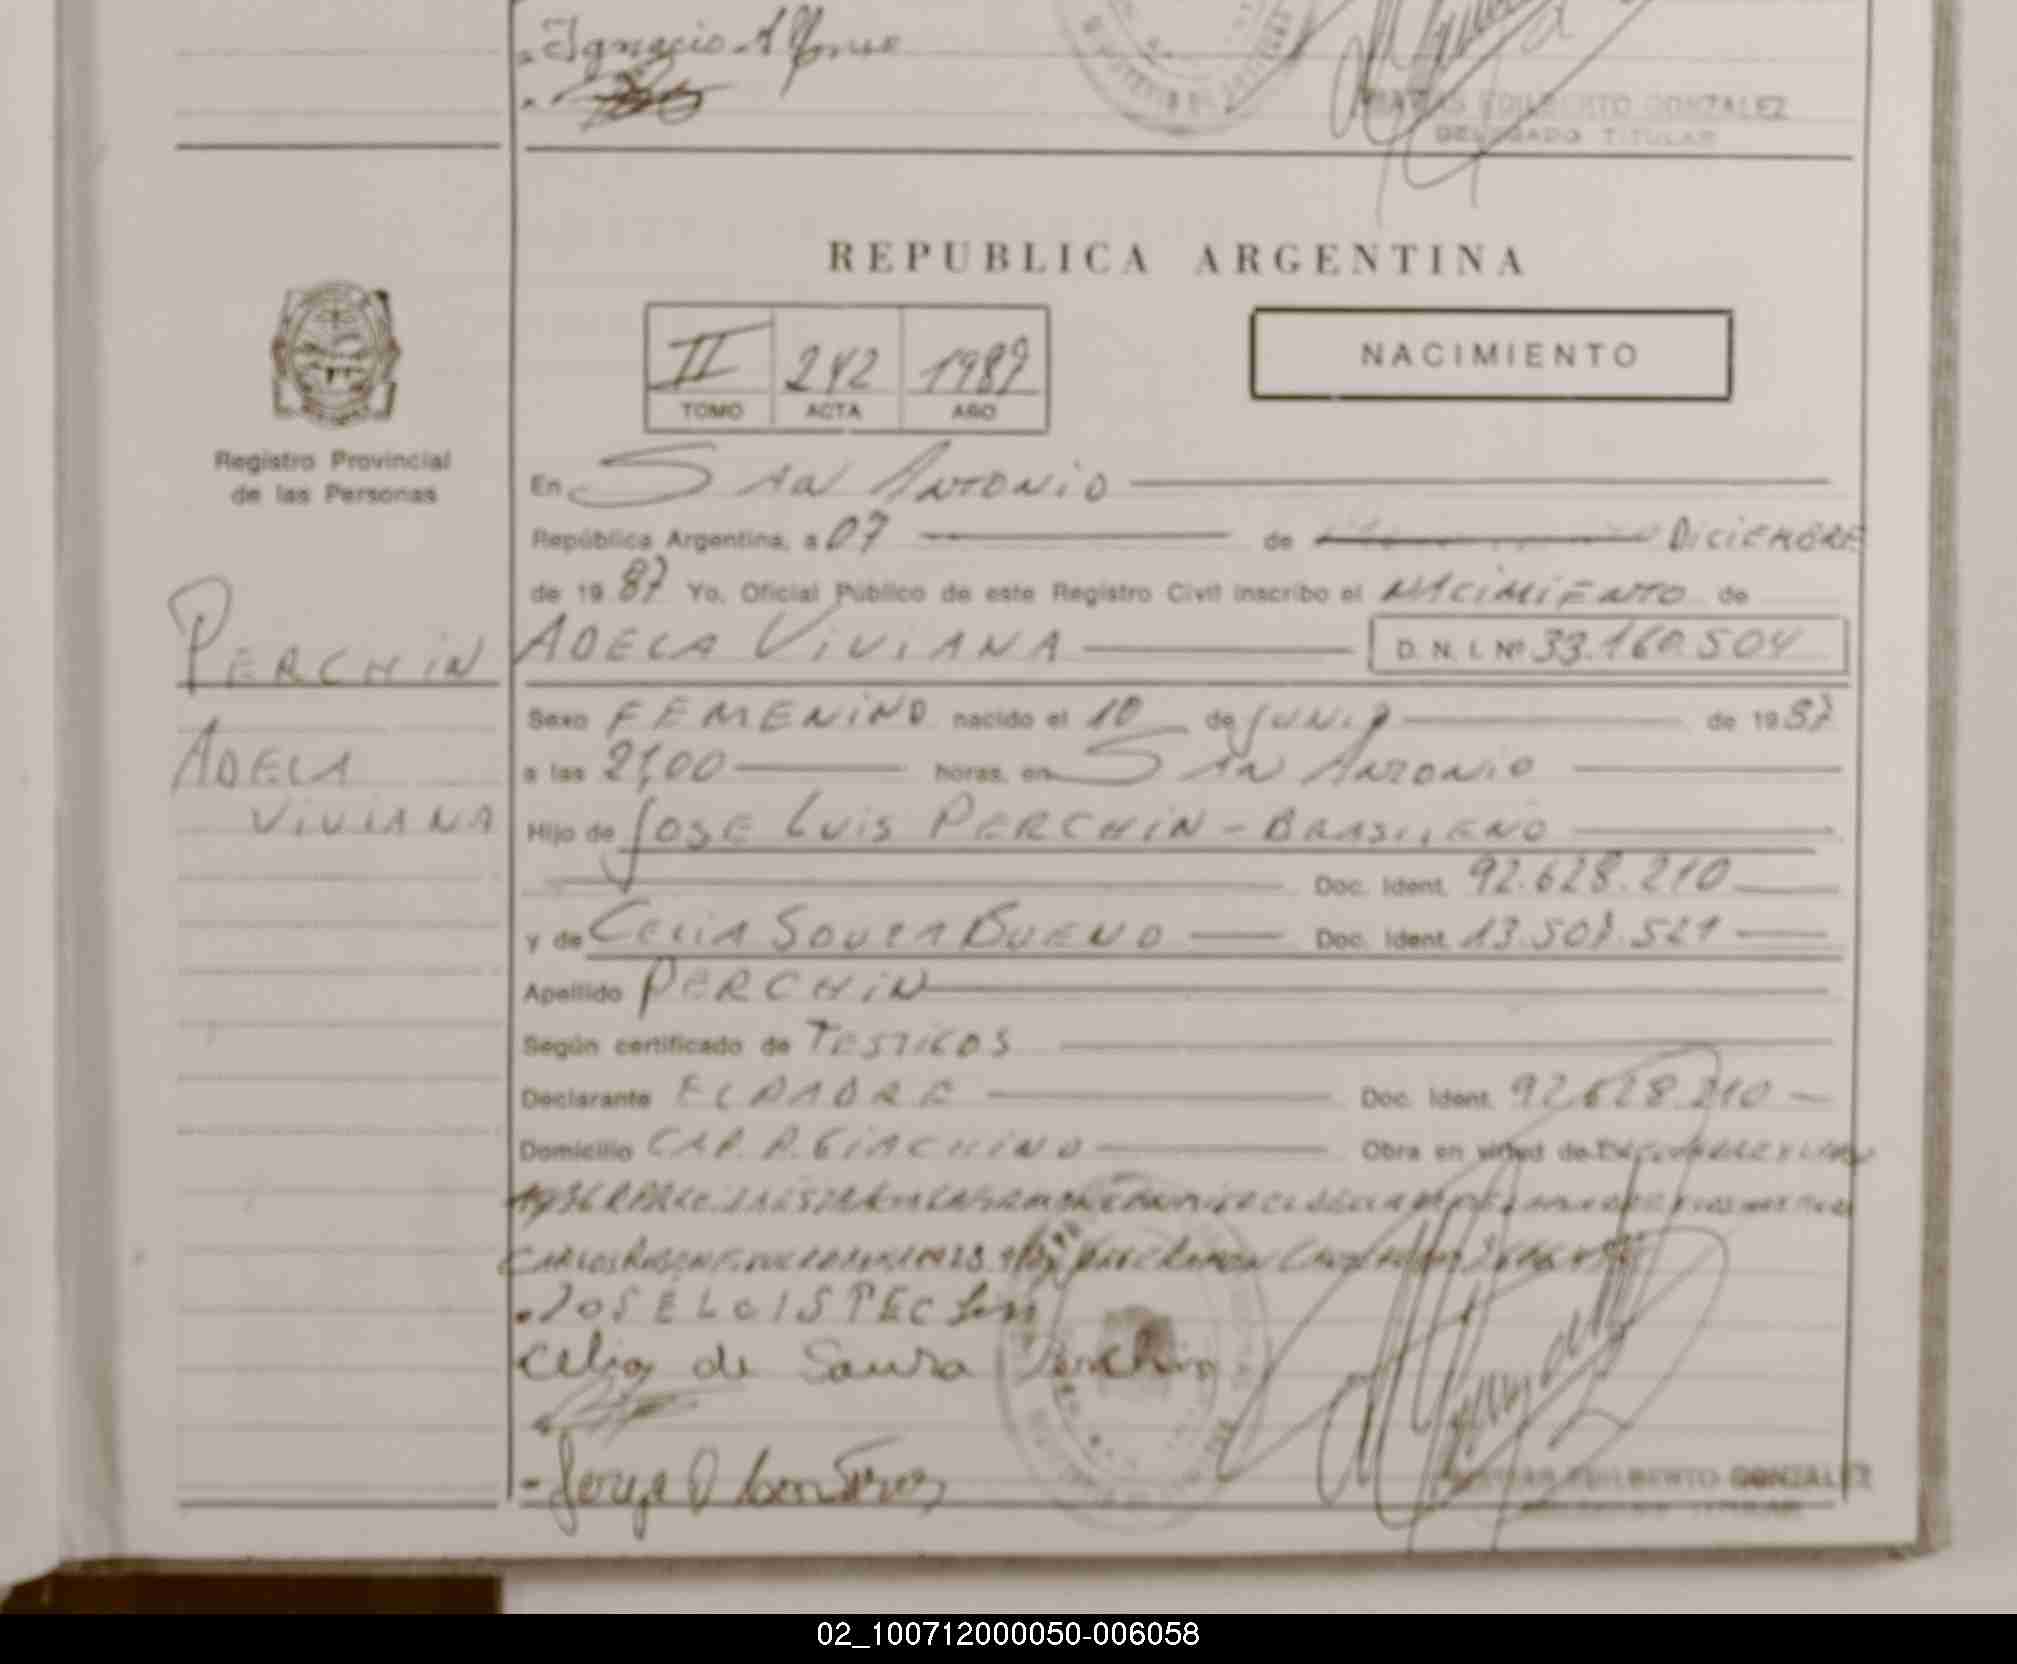 Ignacio Alfonso
MATIAS EDILBERTO GONZALEZ
DELEGADO TITULAR
REPUBLICA ARGENTINA
II 242 1987
TOMO ACTA AÑO
NACIMIENTO
Registro Provincial
de las Personas
En SAN ANTONIO
República Argentina, a 07 de DICIEMBRE
de 19 87 Yo, Oficial Público de este Registro Civil inscribo el NACIMIENTO de
PERCHIN
ADELA VIVIANA D. N. I. Nº 33.160.504
Sexo FEMENINO nacido el 10 de JUNIO de 19 87
ADELA
VIVIANA
a las 21,00 horas, en SAN ANTONIO
Hijo de JOSE LUIS PERCHIN - BRASILENO
Doc. Ident. 92.628.210
y de CELIA SOUZA BUENO Doc. Ident. 13.507.521
Apellido PERCHIN
Según certificado de TESTIGOS
Declarante EL PADRE Doc. Ident. 92.628.210
Domicilio CAP. P. GIACHINO Obra en virtud de
CARLOS RAMON
JOSÉ LUIS
Celia de Sauza Perchin
Jorge
EDILBERTO GONZALEZ
TITULAR
02_100712000050-006058